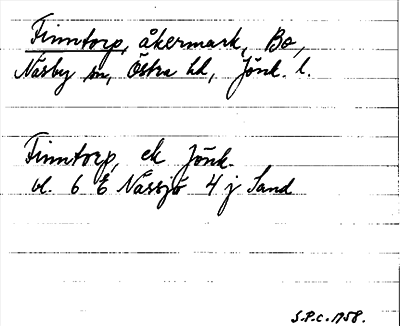 Finntorp, åkermark, Bo,
Näsby sn, Östra hd, Jönk. l.
Finntorp, ek Jönk.
bl. 6 E Nässjö 4 j Sand
S.P.C. 1958.